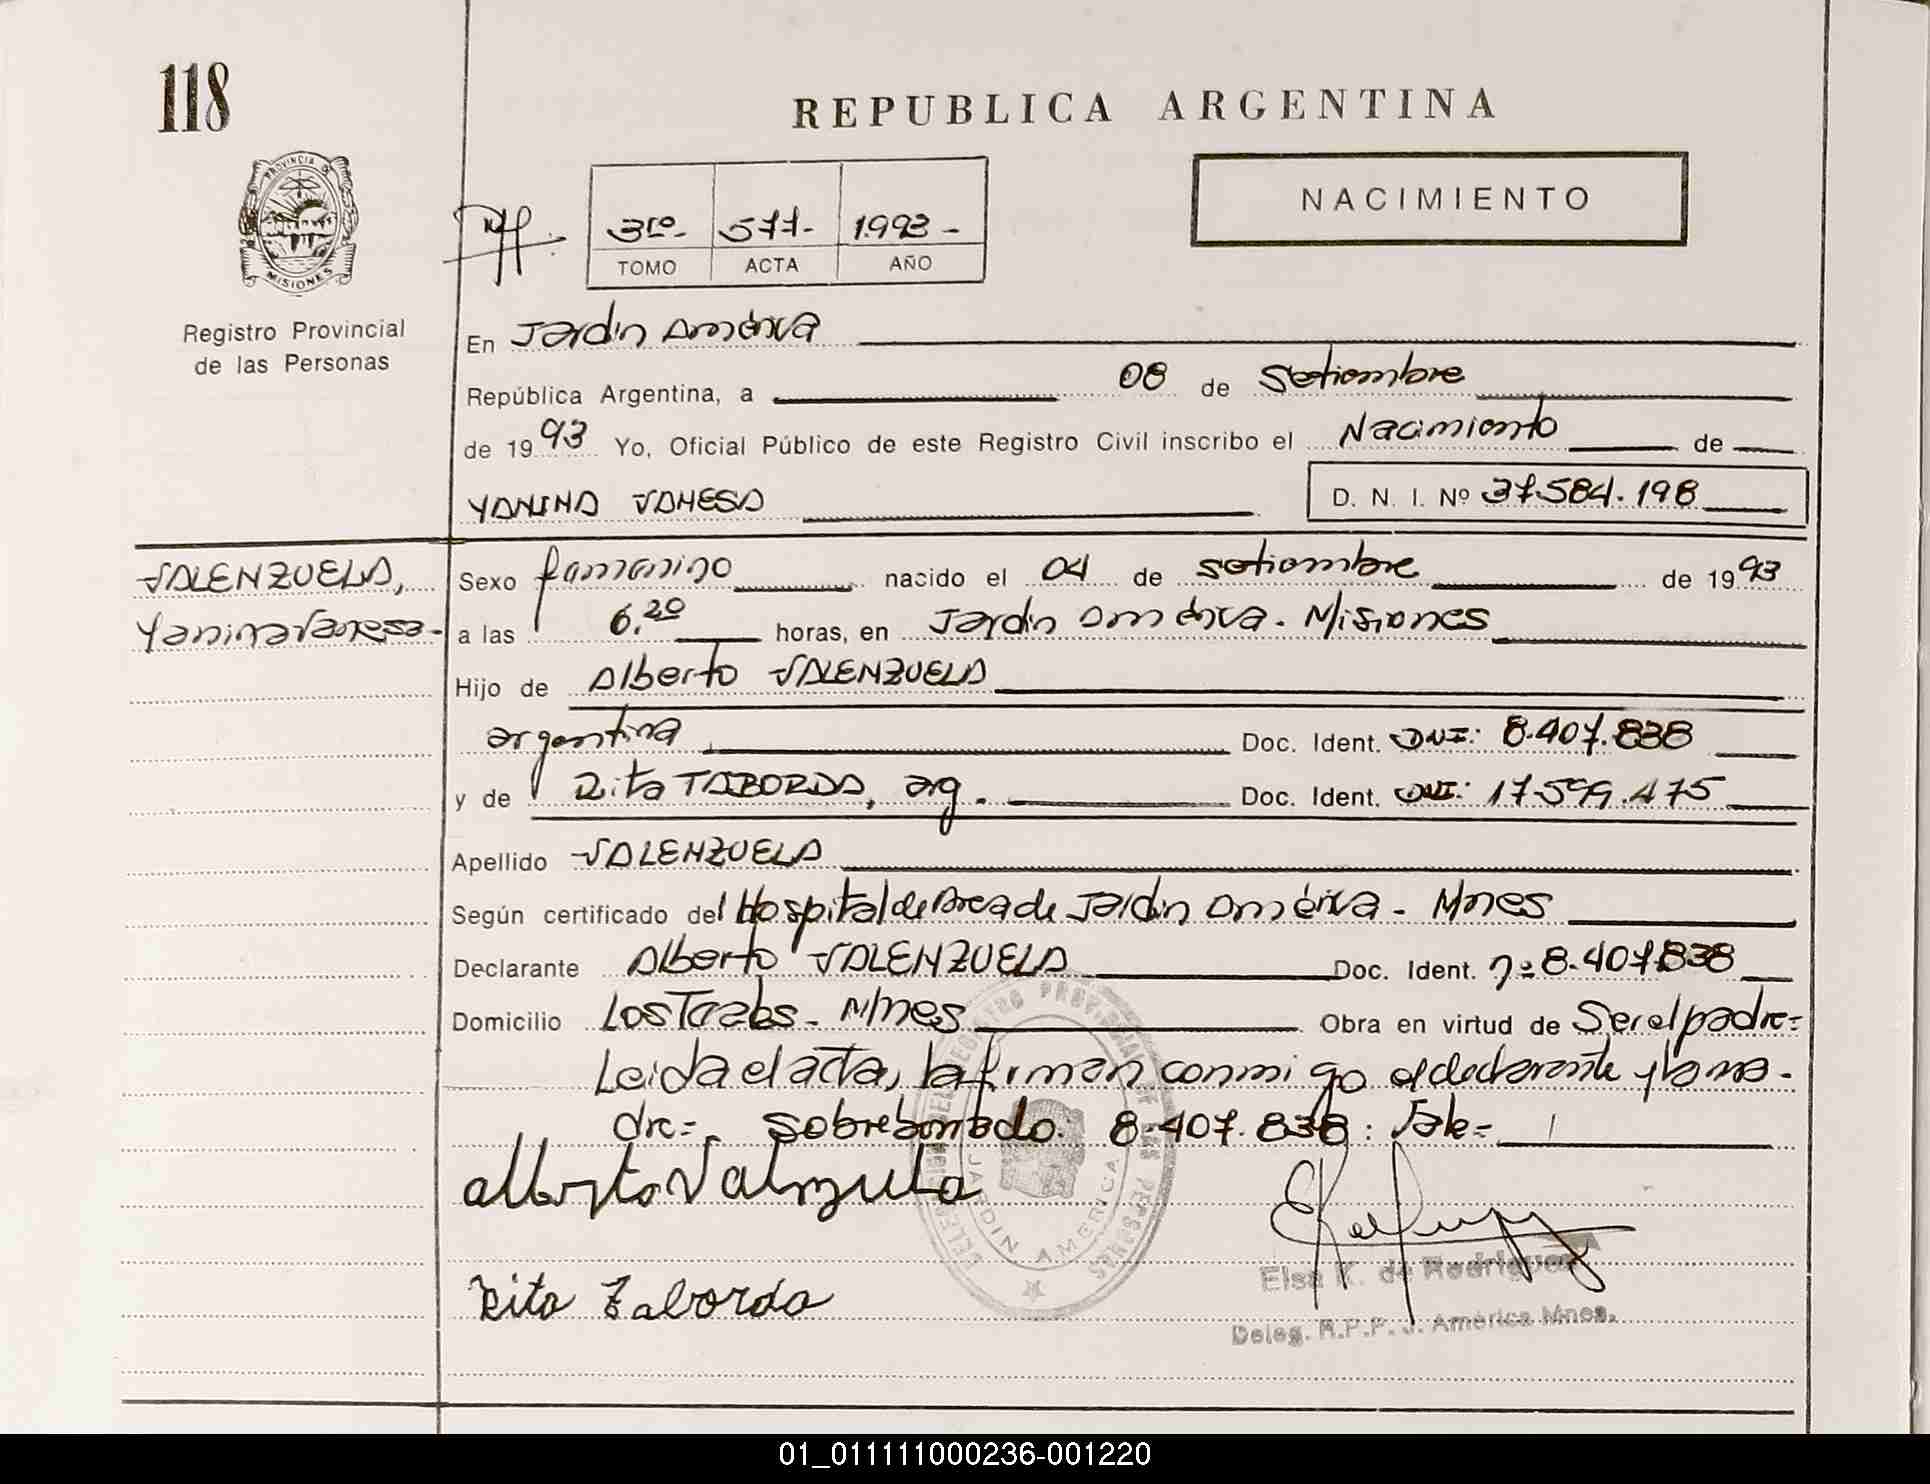 118
REPUBLICA ARGENTINA
PROVINCIA DE
MISIONES
Registro Provincial
de las Personas
3ro- 577- 1.993-
TOMO ACTA AÑO
NACIMIENTO
En Jardin América
República Argentina, a 08 de Setiembre
de 1993 Yo, Oficial Público de este Registro Civil inscribo el Nacimiento de
YANINA VANESA D. N. I. Nº 37.584.198
VALENZUELA,
Yanina Vanesa-
Sexo femenino nacido el 04 de setiembre de 1993
a las 6,20 horas, en Jardin América. Misiones
Hijo de Alberto VALENZUELA
argentina Doc. Ident. DNI: 8.407.838
y de Rita TABORDA, arg. Doc. Ident. DNI: 17.599.475
Apellido VALENZUELA
Según certificado del Hospital de Area de Jardin América - Mnes
Declarante Alberto VALENZUELA Doc. Ident. nº 8.407.838
Domicilio Los Teales - Mnes Obra en virtud de Ser el padre=
Leida el acta, la firman conmigo el declarante y la ma-
dre=. Sobreborrado: 8.407.838: Vale=
Alberto Valenzuela
Rita Taborda
JARDIN AMERICA
Elsa K. de Rodriguez
Deleg. R.P.P. J. América Mnes.
01_011111000236-001220